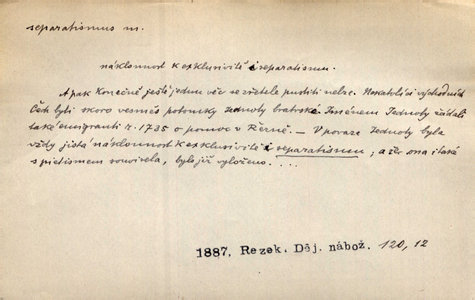 separatismus m.
náklonnost k exklusivitě i separatismu.
A pak konečně ještě jednu věc se zřetele pustiti nelze. Nekatolíci východních
Čech byli skoro vesměs potomky Jednoty bratrské. Jménem Jednoty žádali
také emigranti r. 1735 o pomoc v Perně. — V povaze Jednoty byla
vždy jistá náklonnost k exklusivitě i separatismu, a že ona i také
s pietismem souvisela, bylo již vyloženo. ...
1887, Rezek. Děj. nábož. 120, 12